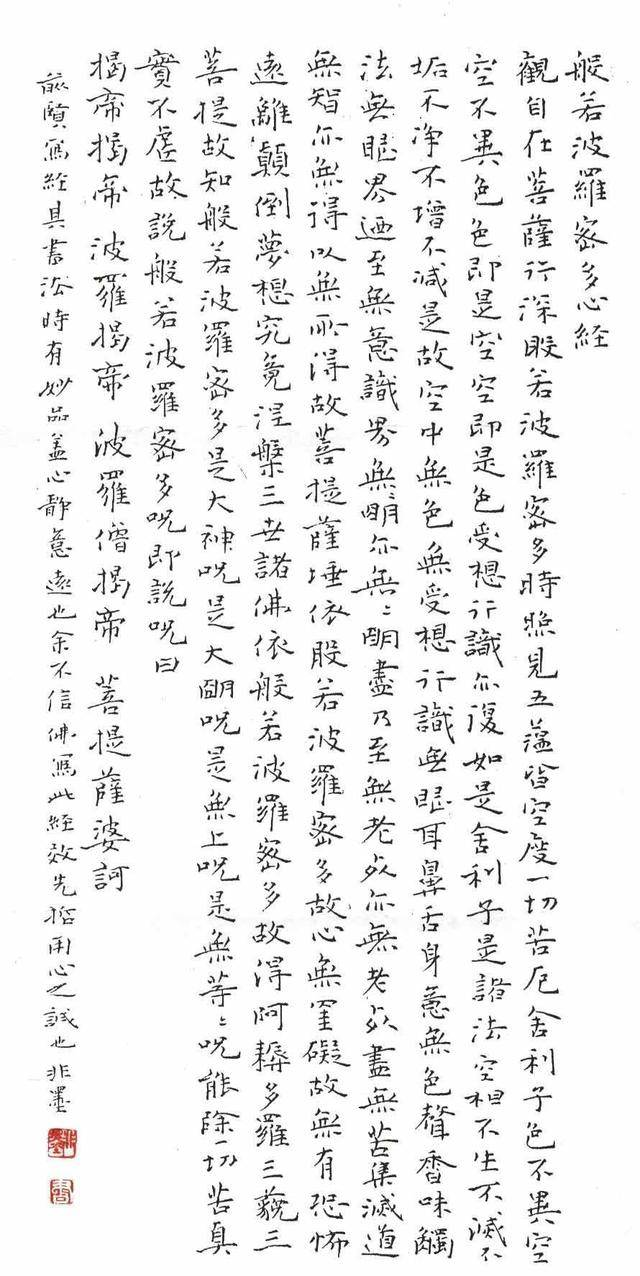 般若波羅密多心經
觀自在菩薩行深般若波羅密多時照見五蕴皆空度一切苦厄舍利子色不異空
空不異色色即是空空即是色受想行識亦復如是舍利子是諸法空相不生不滅不
垢不净不增不減是故空中無色無受想行識無眼耳鼻舌身意無色聲香味觸
法無眼界迺至無意識界無明亦無〻明盡乃至無老死亦無老死盡無苦集滅道
無智亦無得以無所得故菩提薩埵依般若波羅密多故心無罣礙故無有恐怖
遠離顛倒夢想究竟涅槃三世諸佛依般若波羅密多故得阿耨多羅三藐三
菩提故知般若波羅密多是大神呪是大明呪是無上呪是無等〻呪能除一切苦真
實不虛故説般若波羅密多呪即説呪曰
揭帝揭帝 波羅揭帝 波羅僧揭帝 菩提薩婆訶
前賢寫經具書法時有妙品蓋心静意遠也余不信佛寫此經效先哲用心之誠也非墨